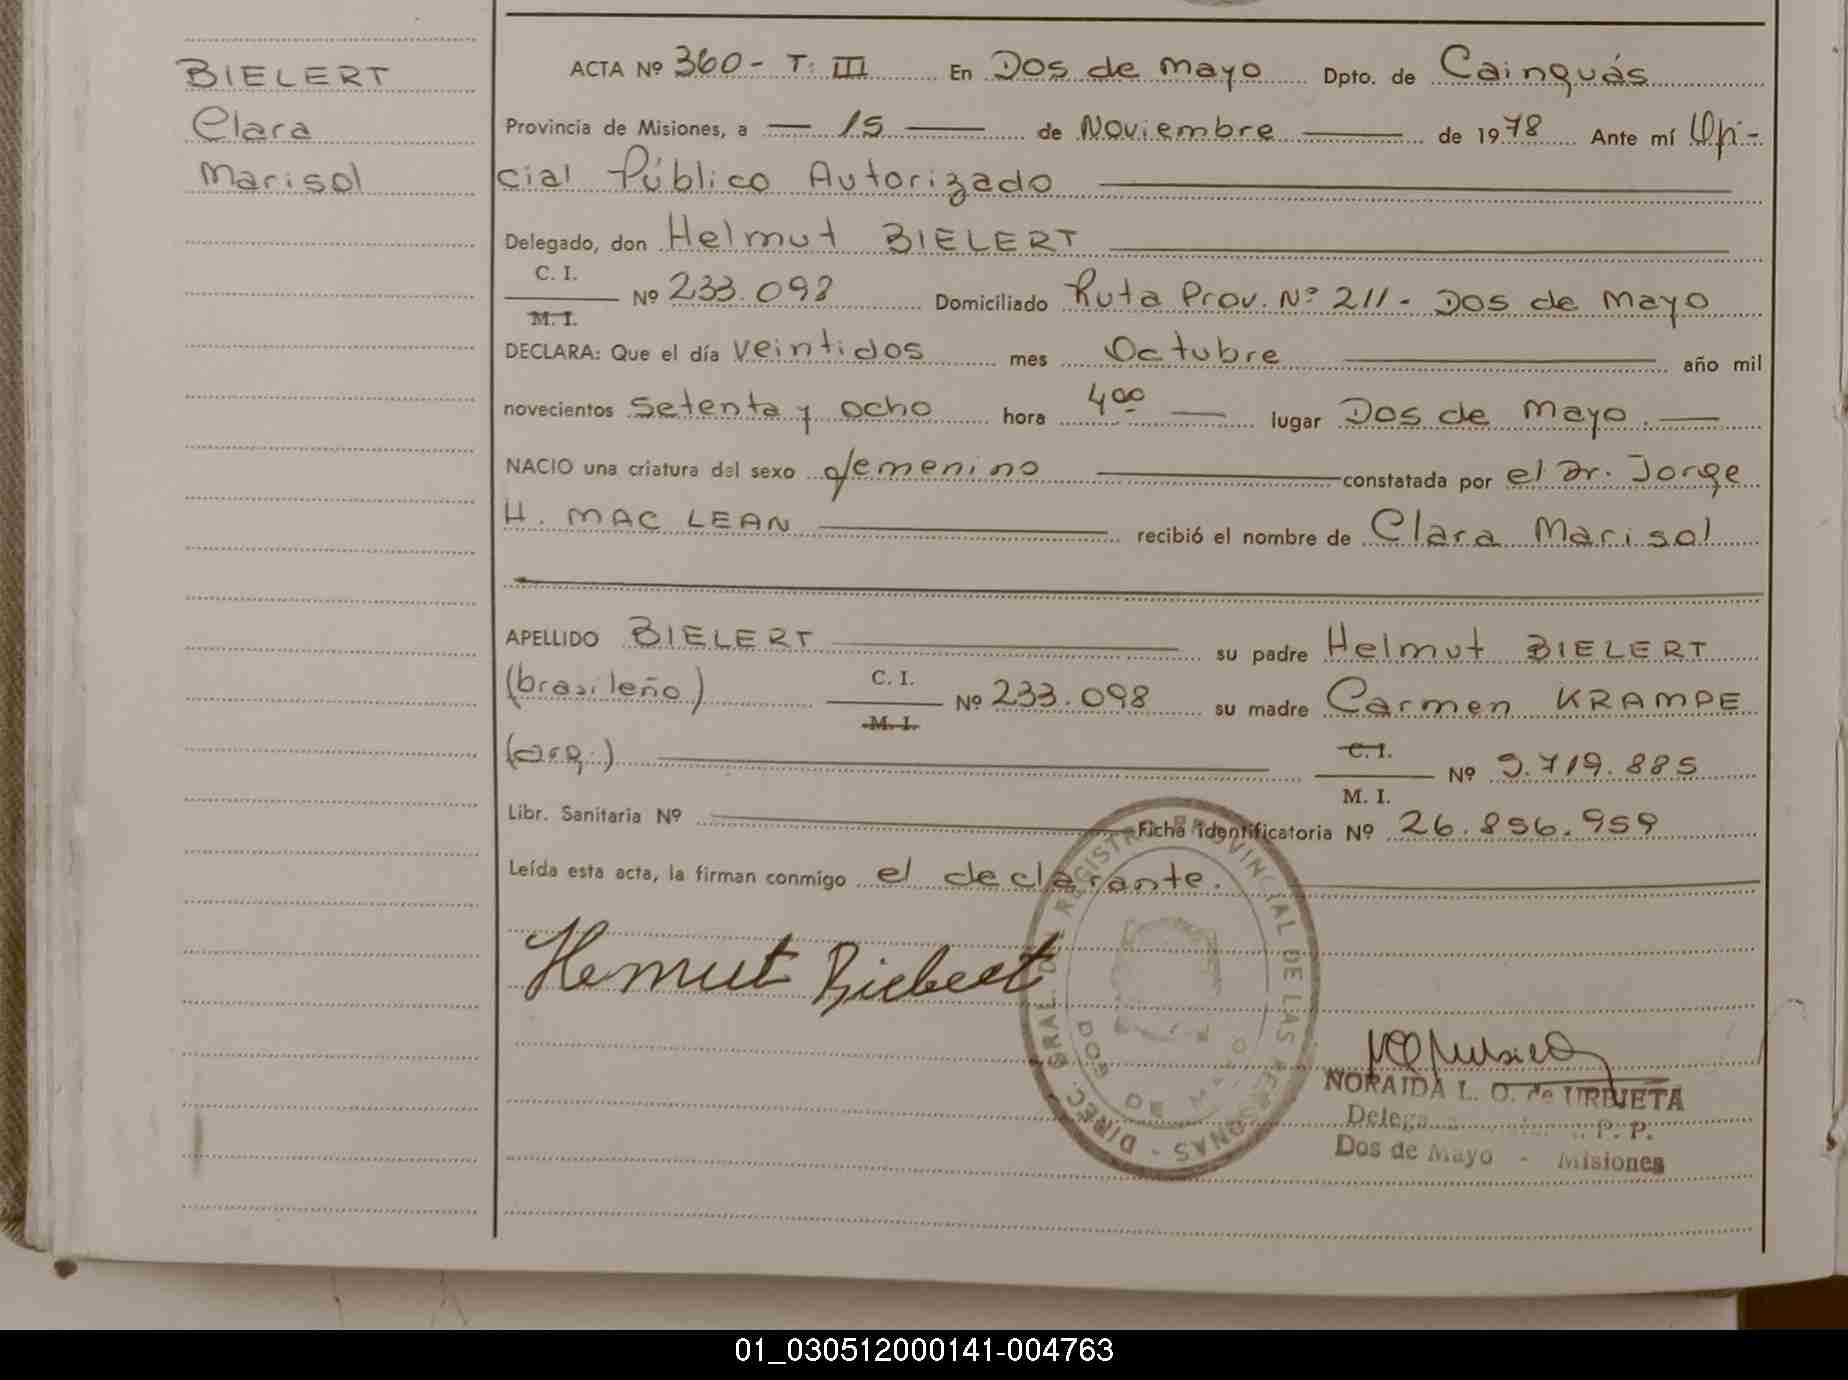 BIELERT
Clara
Marisol
ACTA Nº 360 - T. III En Dos de Mayo Dpto. de Cainguás
Provincia de Misiones, a — 15 — de Noviembre — de 1978 Ante mí Ofi-
cial Público Autorizado
Delegado, don Helmut BIELERT
C. I.
Nº 233.098 Domiciliado Ruta Prov. Nº 211 - Dos de Mayo
M. I.
DECLARA: Que el día veintidos mes Octubre año mil
novecientos setenta y ocho hora 4 00 — lugar Dos de Mayo. —
NACIO una criatura del sexo femenino constatada por el Dr. Jorge
H. MAC LEAN recibió el nombre de Clara Marisol
APELLIDO BIELERT su padre Helmut BIELERT
(brasileño) C. I. Nº 233.098 su madre Carmen KRAMPE
M. I.
(arg.) C. I. Nº 9.719.885
M. I.
Libr. Sanitaria Nº Ficha identificatoria Nº 26.856.959
Leída esta acta, la firman conmigo el declarante.
Hemut Bielert
DIREC. GRAL. DEL REGISTRO PROVINCIAL DE LAS PERSONAS -
DOS DE MAYO
NORAIDA L. O. de URRUETA
P. P.
Dos de Mayo - Misiones
01_030512000141-004763